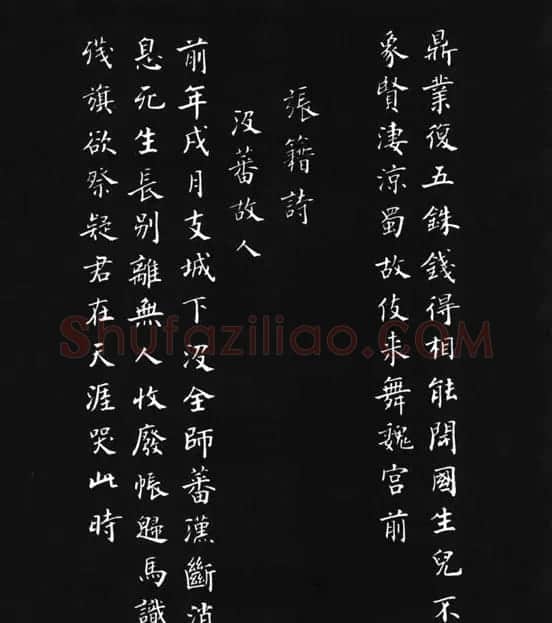 鼎業復五銖錢得相能開國生兒不
象賢淒涼蜀故伎來舞魏宮前
張籍詩
沒蕃故人
前年戍月支城下沒全師蕃漢斷消
息死生長別離無人收廢帳歸馬識
殘旗欲祭疑君在天涯哭此時
Shufaziliao.COM